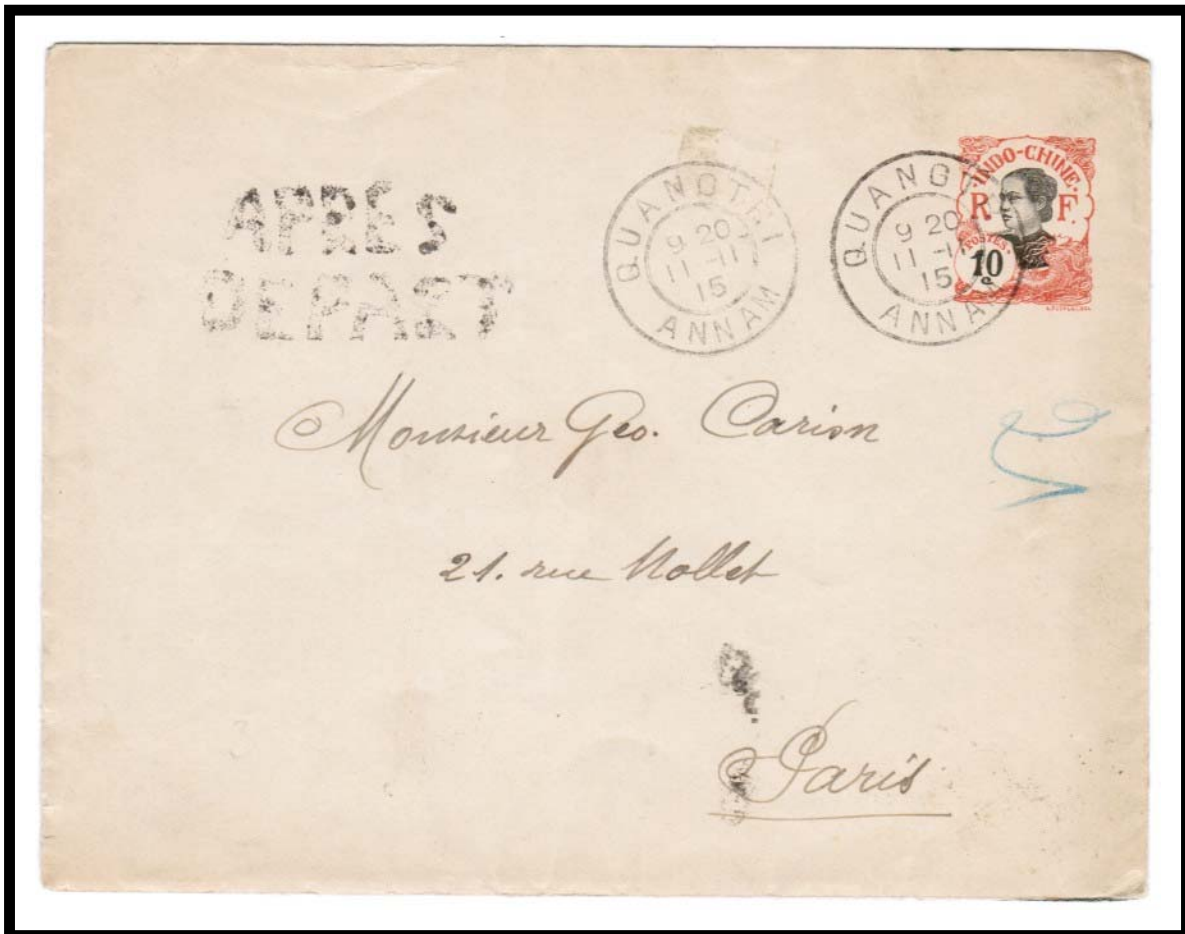 APRES
DEPART
QUANGTRI
9 20
11 -11
15
ANNAM
QUANGT
9 20
11 -11
15
ANNA
INDO-CHINE
R F.
POSTES
10
c.
Monsieur Geo. Carion
21. rue Nollet
Paris